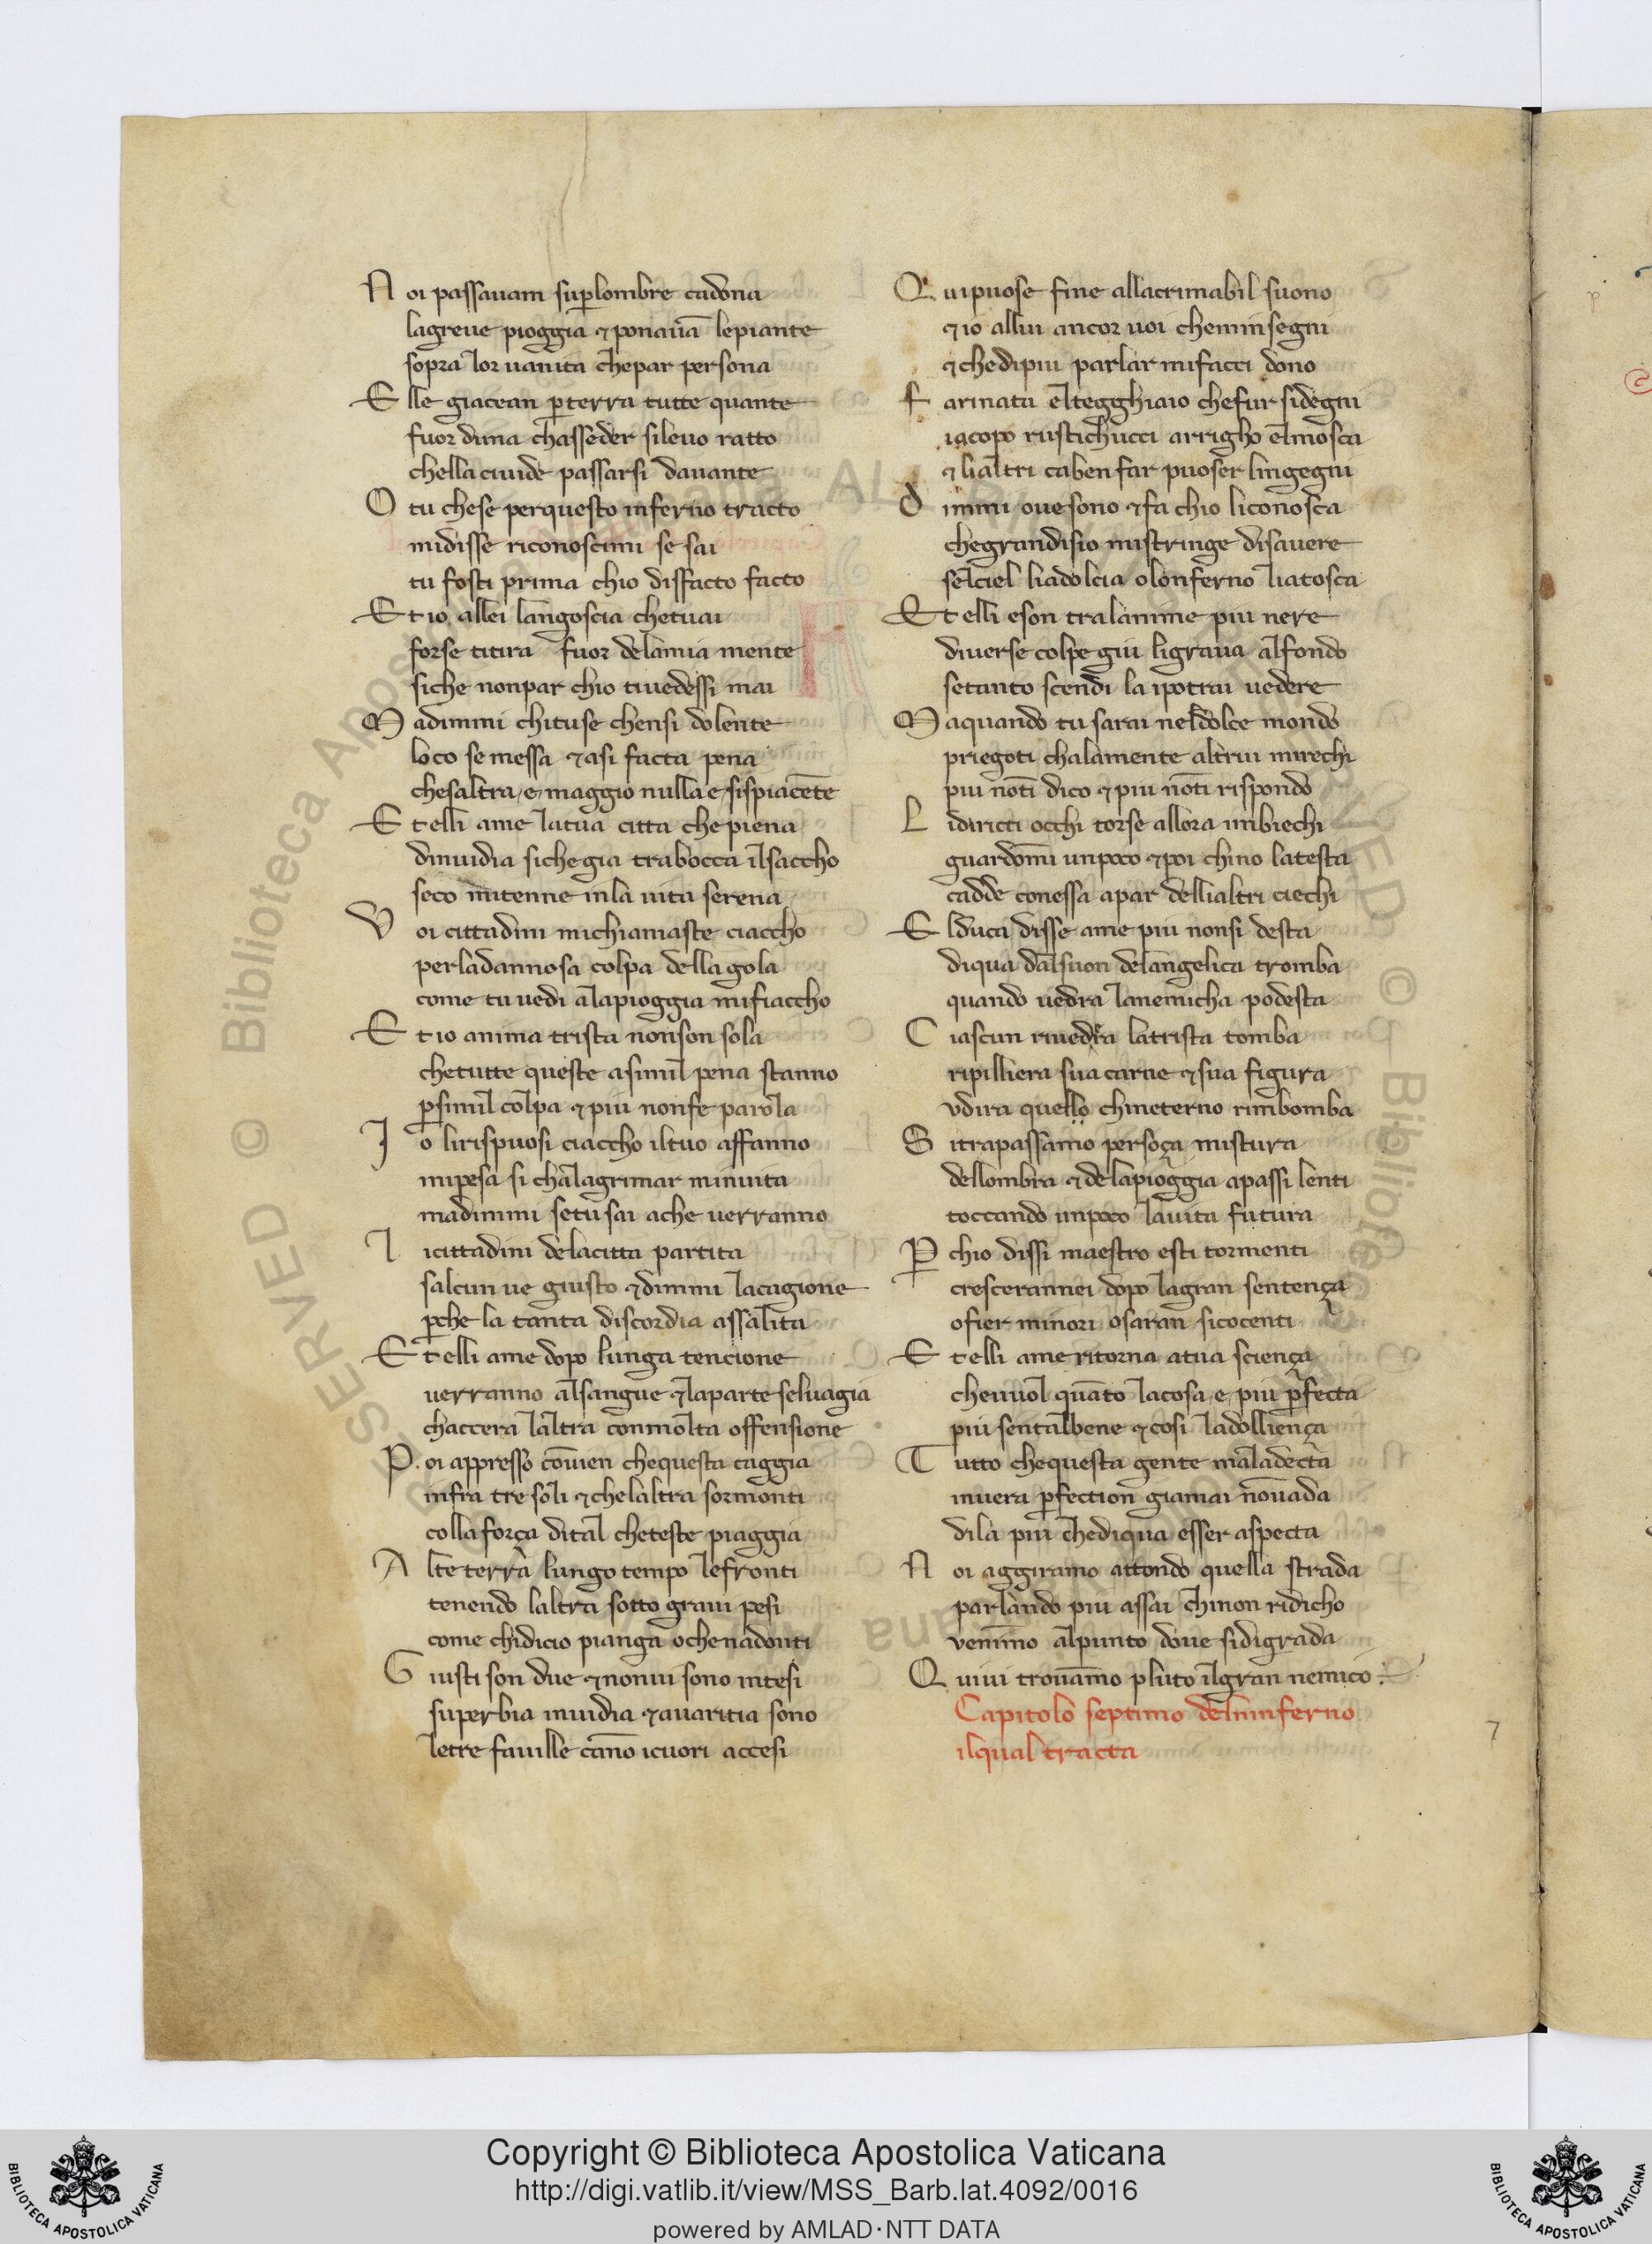 N oi passauam superlombre cadona
lagreue pioggia ⁊ ponauā lepiante
sopra lor uanita chepar persona
E lle giacean perterra tutte quante
fuor duna chasseder sileuo ratto
chella ciuide passarsi dauante
O tu chese perquesto inferno tracto
midisse riconoscimi se sai
tu fosti prima chio disfacto facto
E t io allei langoscia chetuai
forse titira fuor delamia mente
siche nonpar chio tiuedessi mai
M adimmi chituse chensi dolente
loco se messa ⁊ asi facta pena
chesaltra e maggio nulla e sispiacēte
E t elli ame latua citta chepiena
dinuidia sichegia trabocca ilsaccho
seco mitenne inla uita serena
V oi cittadini michiamaste ciaccho
perladannosa colpa dellagola
come tu uedi alapioggia mifiaccho
E t io anima trista nonson sola
chetutte queste asimil pena stanno
persimil colpa ⁊ piu nonfe parola
I o lirispuosi ciaccho iltuo affanno
mipesa si chalagrimar minuita
madimmi setusai ache uerranno
I icittadini delacitta partita
salcun ue giusto ⁊ dimmi lacagione
perche la tanta discordia assalita
E t elli ame dopo lunga tencione
uerranno alsangue ⁊ laparte seluagia
chaccera laltra conmolta offensione
P oi appresso cōuien chequesta caggia
infra tre soli ⁊ chelaltra sormonti
collaforça dital cheteste piaggia
A lte terra lungo tempo lefronti
tenendo laltra sotto graui pesi
come chidicio pianga ochenadonti
G iusti son due ⁊ nonui sono intesi
superbia inuidia ⁊ auaritia sono
letre fauille cāno icuori accesi
Q uipuose fine allacrimabil suono
⁊ io allui ancor uoi cheminsegni
⁊ chedipiu parlar mifacci dono
f arinata eltegghiaio chefur sidegni
iacopo rustichucci arrigho elmosca
⁊ lialtri cabenfar puoser lingegni
d immi ouesono ⁊ fa chio liconosca
chegrandisio mistringe disauere
selciel liadolcia olonferno liatosca
E t elli eson tralanime piu nere
diuerse colpe giu ligraua alfondo
setanto scendi la ipotrai uedere
M aquando tu sarai neldolce mondo
priegoti chalamente altrui mirechi
piu nōti dico ⁊ piu nōti rispondo
L idiricti occhi torse allora imbiechi
guardōmi unpoco ⁊ poi chino latesta
cadde conessa apar dellialtri ciechi
E lduca disse ame piu nonsi desta
diqua dalsuon delangelica tromba
quando uedra lanemicha podesta
C iascun riuedra latrista tomba
ripilliera sua carne ⁊ sua figura
vdira quello chineterno rimbomba
S itrapassamo persoça mistura
dellombra ⁊ delapioggia apassi lenti
toccando unpoco lauita futura
P chio dissi maestro esti tormenti
crescerannei dopo lagran sentença
ofier minori osaran sicocenti
E t elli ame ritorna atua sciença
cheuuol quāto lacosa e piu perfecta
piu sentalbene ⁊ cosi ladolliença
T utto chequesta gente maladecta
inuera perfection giamai nōuada
dila piu chediqua esser aspecta
N oi aggiramo attondo quella strada
parlando piu assai chinon ridicho
venimmo alpunto doue sidigrada
Q uiui trouāmo pluto ilgran nemico :
Capitolo septimo delninferno
ilqual tracta
7
Copyright © Biblioteca Apostolica Vaticana
http://digi.vatlib.it/view/MSS_Barb.lat.4092/0016
powered by AMLAD·NTT DATA
BIBLIOTECA APOSTOLICA VATICANA
BIBLIOTECA APOSTOLICA VATICANA